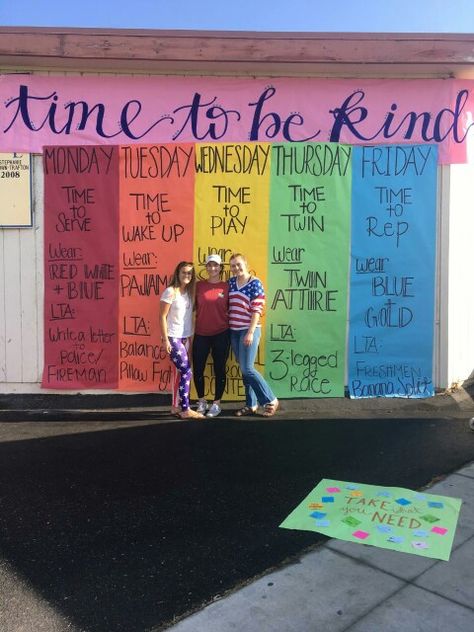 time to be kind
STEPHANIE
BROWN-TRAFTON
2008
MONDAY
TIME
to
SERVE
Wear:
RED WHITE
+ BLUE
LTA:
Write a letter
to
POLICE/
FIREMAN
TUESDAY
TIME
to
WAKE UP
Wear:
PAJAMAS
LTA:
Balance
Pillow Fight
WEDNESDAY
TIME
to
PLAY
Wear:
CONTEST
THURSDAY
TIME
to
TWIN
Wear:
TWIN
ATTIRE
LTA:
3-legged
Race
FRIDAY
TIME
to
Rep
Wear
BLUE
&
GOLD
LTA:
FRESHMEN
Banana Split
TAKE what
you NEED